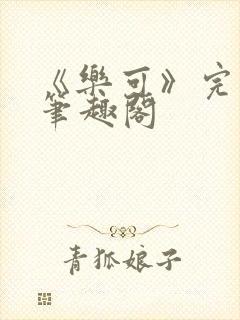 《樂可》完
筆趣閣
青狐娘子